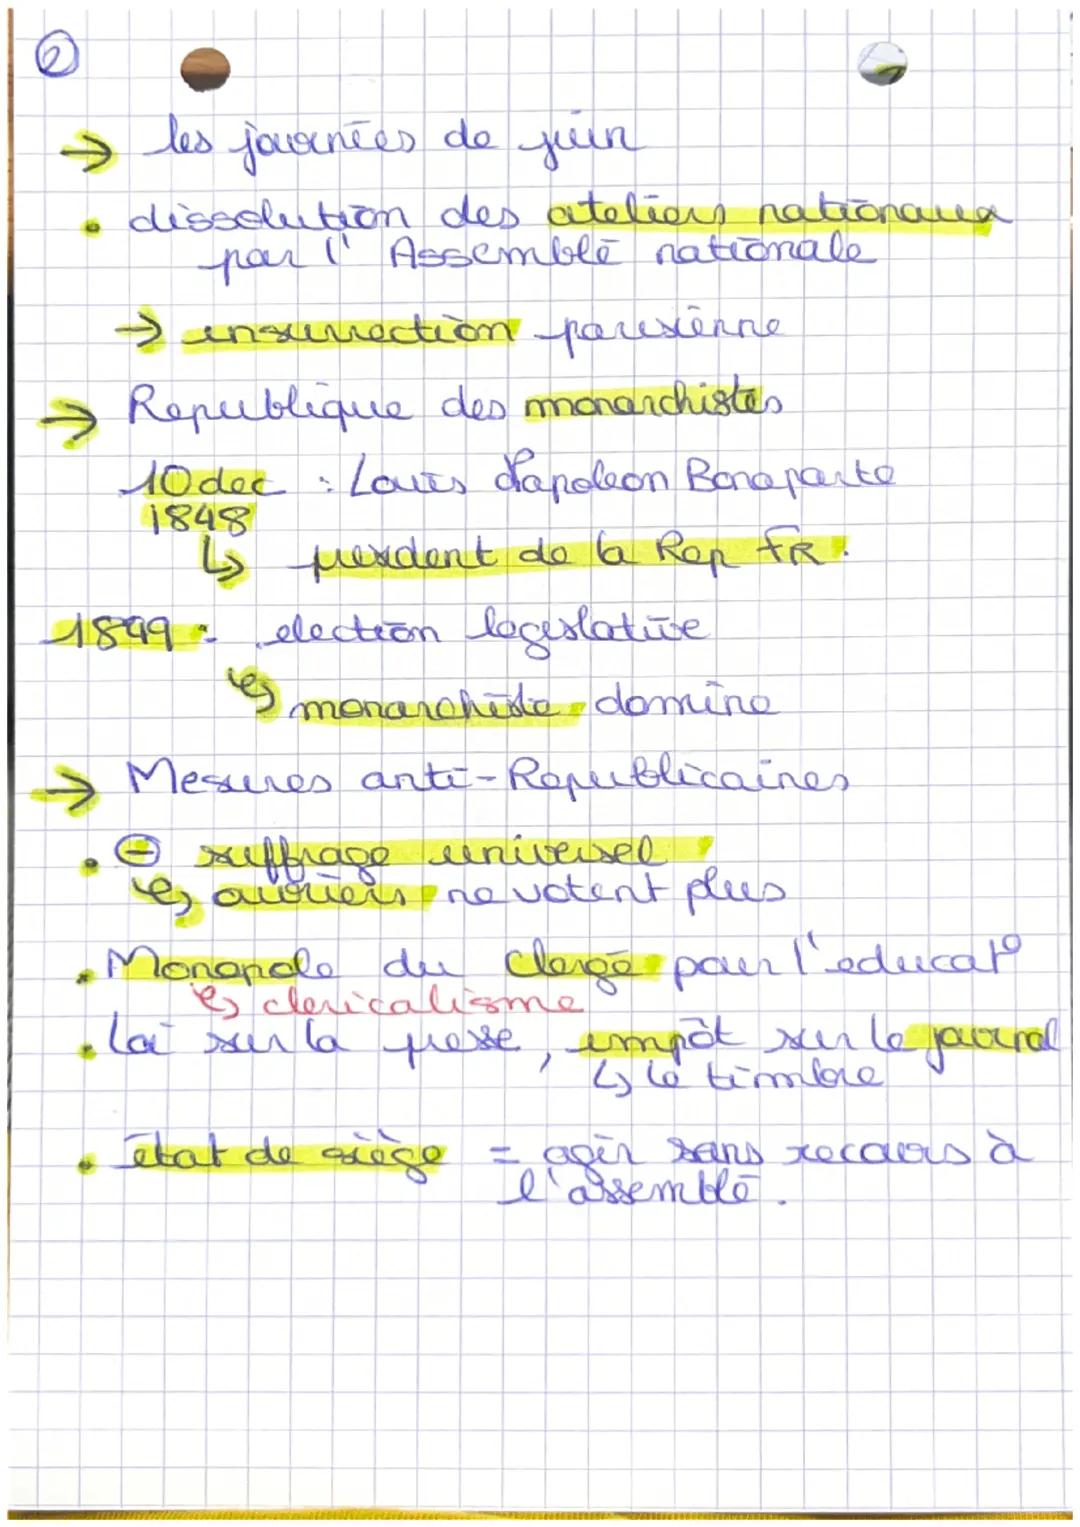 2
→ les journées de juin
• dissolution des ateliers nationaux
par l'Assemblé nationale
→ insurrection parisienne
→ Republique des monarchistes
10 dec : Louis Napoleon Bonaparte
1848
↳ president de la Rep FR.
1849 : election legislative
↳ monarchiste domine
→ Mesures anti-Republicaines
• ⊖ suffrage universel
↳ ouvriers ne votent plus
• Monopole du Clergé pour l'educat°
↳ clericalisme
• Loi sur la presse, impôt sur le journal
↳ le timbre
• état de siège = agir sans recours à
l'assemblé.